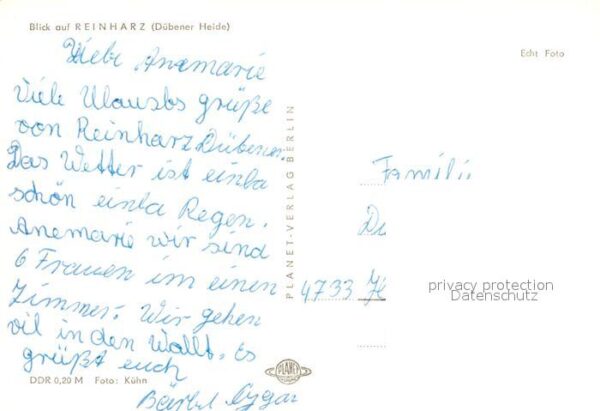 Blick auf REINHARZ (Dübener Heide)
Echt Foto
Liebe Anemarie
Viele Ulausbs grüße
von Reinharz Dübener
Das Wetter ist einba
schön einba Regen.
Anemarie wir sind
6 Frauen im einen
Zimmer. Wir gehen
vil in den Wallt. Es
grüßt euch
Bärbel
PLANET-VERLAG BERLIN
Famili
4733
privacy protection
Datenschutz
PLANET
DDR 0,20 M Foto: Kühn